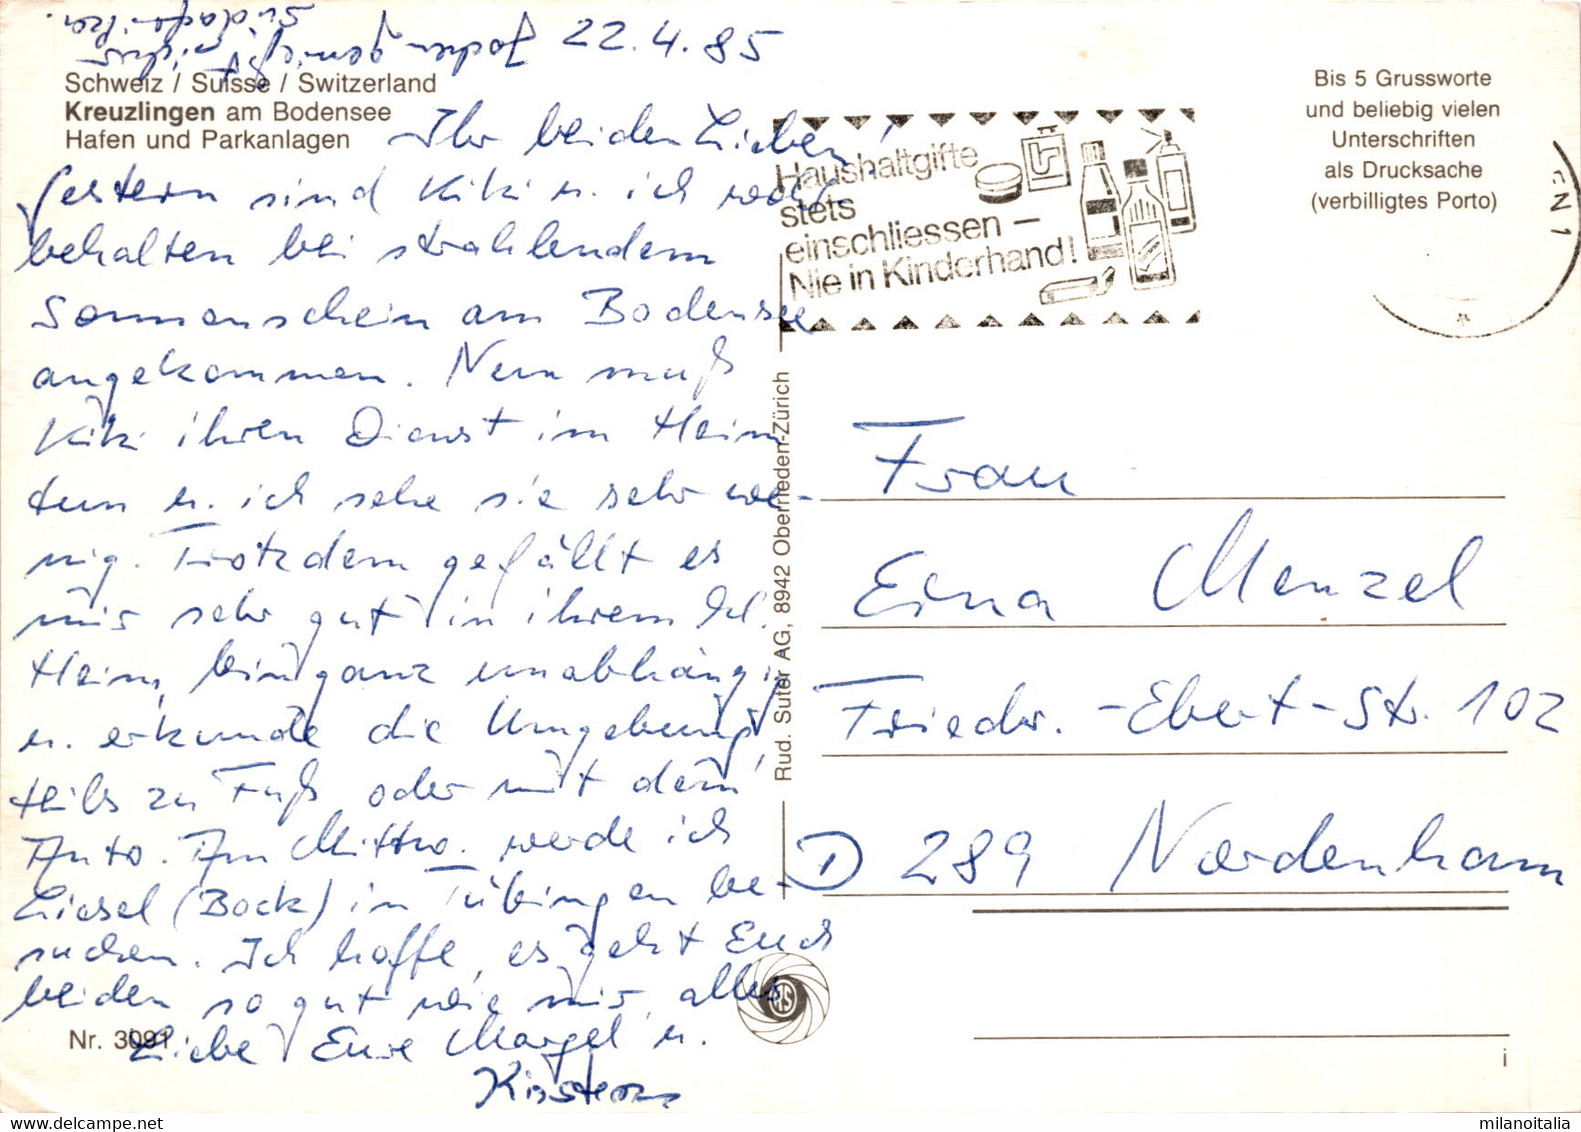 22.4.85
Schweiz / Suisse / Switzerland
Kreuzlingen am Bodensee
Hafen und Parkanlagen
Ihr beiden Lieben!
Gestern sind Kiki u. ich wohl-
behalten bei strahlendem
Sonnenschein am Bodensee
angekommen. Nun muß
Kiki ihren Dienst im Heim
tun u. ich sehe sie sehr we-
nig. Trotzdem gefällt es
mir sehr gut in ihrem
Heim, bin ganz unabhängig
u. erkunde die Umgebung,
teils zu Fuß oder mit dem
Auto. Am Mittw. werde ich
Liesel (Bock) in Tübingen be-
suchen. Ich hoffe, es geht Euch
beiden so gut wie mir, alles
Liebe Eure Margel u.
Kirsten
Jochen genießt
Südafrika.
Nr. 3091
Haushaltgifte
stets
einschliessen –
Nie in Kinderhand!
EN 1
Bis 5 Grussworte
und beliebig vielen
Unterschriften
als Drucksache
(verbilligtes Porto)
Rud. Suter AG, 8942 Oberrieden-Zürich
RS
Frau
Eina Menzel
Friedr.-Ebert-Str. 102
D 289 Nordenham
i
delcampe.net
milanoitalia